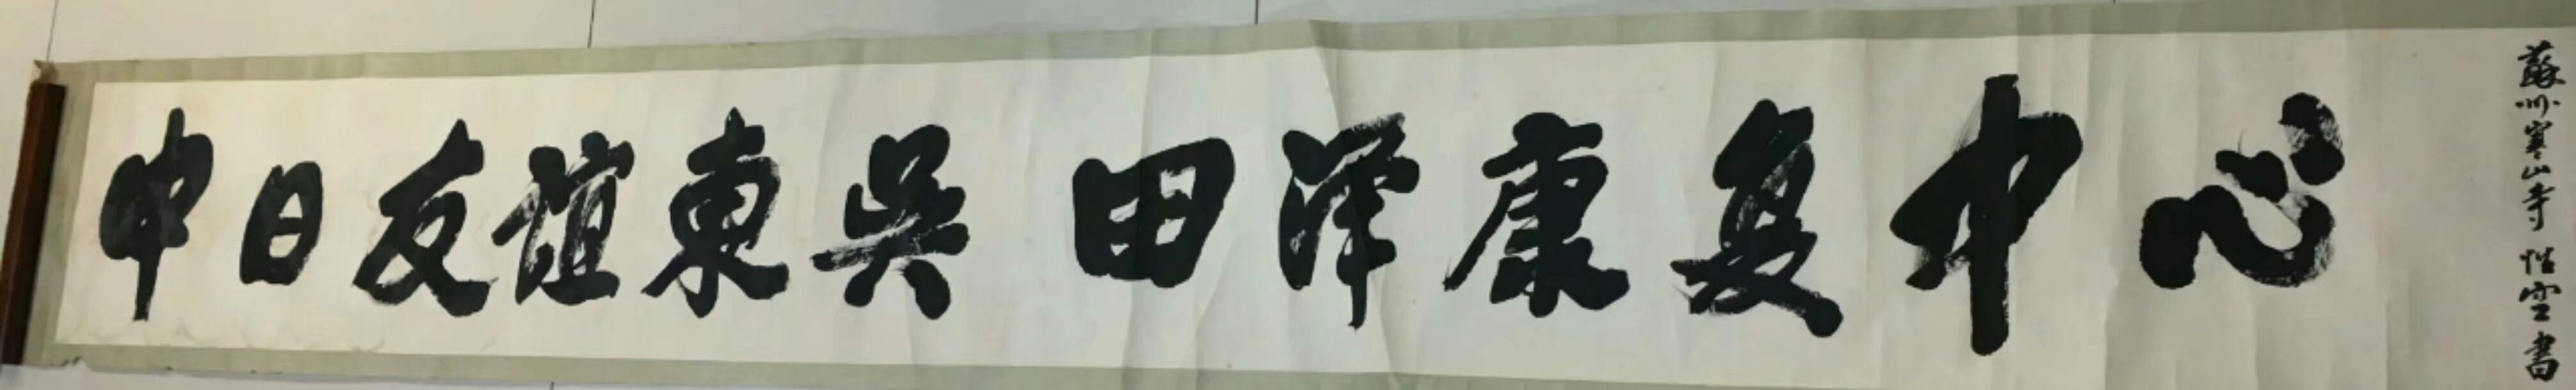 中日友誼東吳田泽康复中心
蘇州寒山寺 性空書